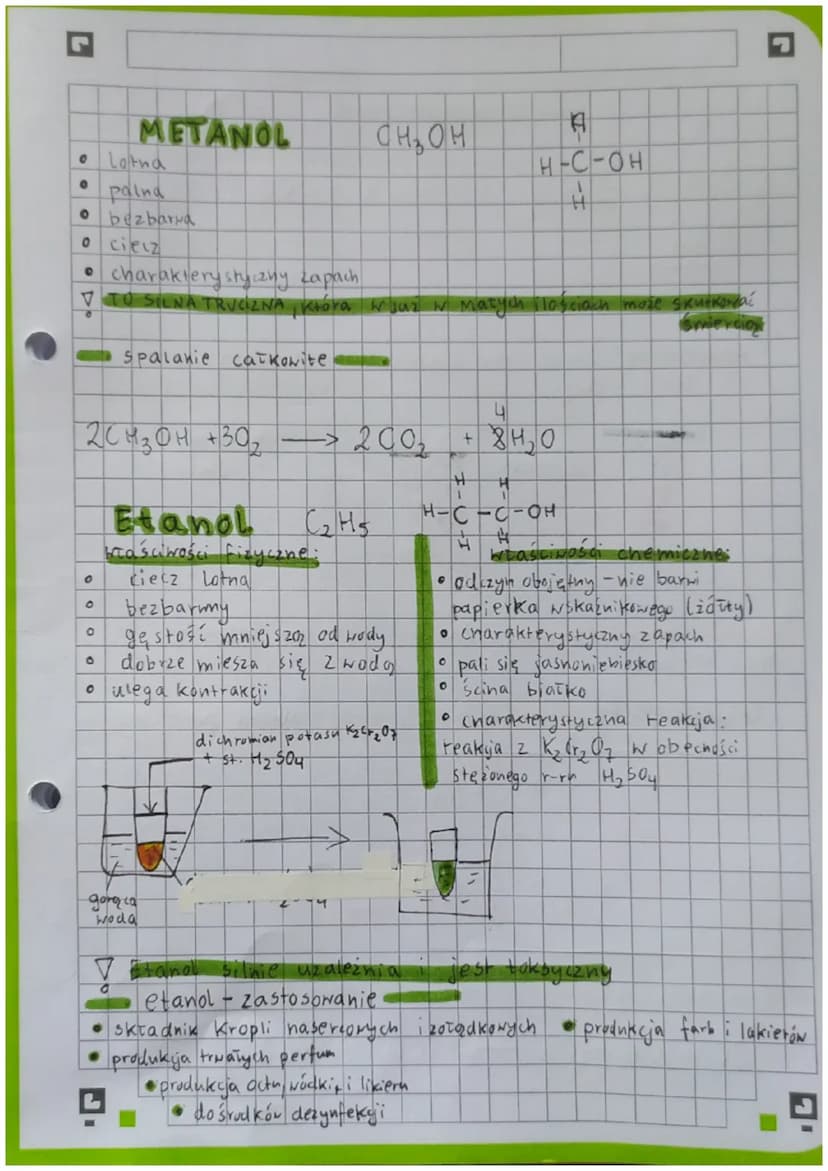 METANOL CH₃OH
H
H-C-OH
H
• lotna
• palna
• bezbarwna
• ciecz
• charakterystyczny zapach
! TO SILNA TRUCIZNA, która w już w małych ilościach może skutkować
śmiercią
spalanie całkowite
4
2CH₃OH + 3O₂ → 2CO₂ + 8H₂O
H H
Etanol C₂H₅ H-C-C-OH
H H
właściwości fizyczne:
• ciecz lotna
• bezbarwny
• gęstość mniejszą od wody
• dobrze miesza się z wodą
• ulega kontrakcji
właściwości chemiczne:
• odczyn obojętny - nie barwi
papierka wskaźnikowego (żółty)
• charakterystyczny zapach
• pali się jasnoniebiesko
• ścina białko
• charakterystyczna reakcja:
reakcja z K₂Cr₂O₇ w obecności
stężonego r-ru H₂SO₄
dichromian potasu K₂Cr₂O₇
+ st. H₂SO₄
gorąca
woda
! Etanol silnie uzależnia i jest toksyczny
etanol - zastosowanie
• składnik kropli nasercowych i żołądkowych • produkcja farb i lakierów
• produkcja trwałych perfum
• produkcja octu, wódki, i likieru
• do środków dezynfekcji